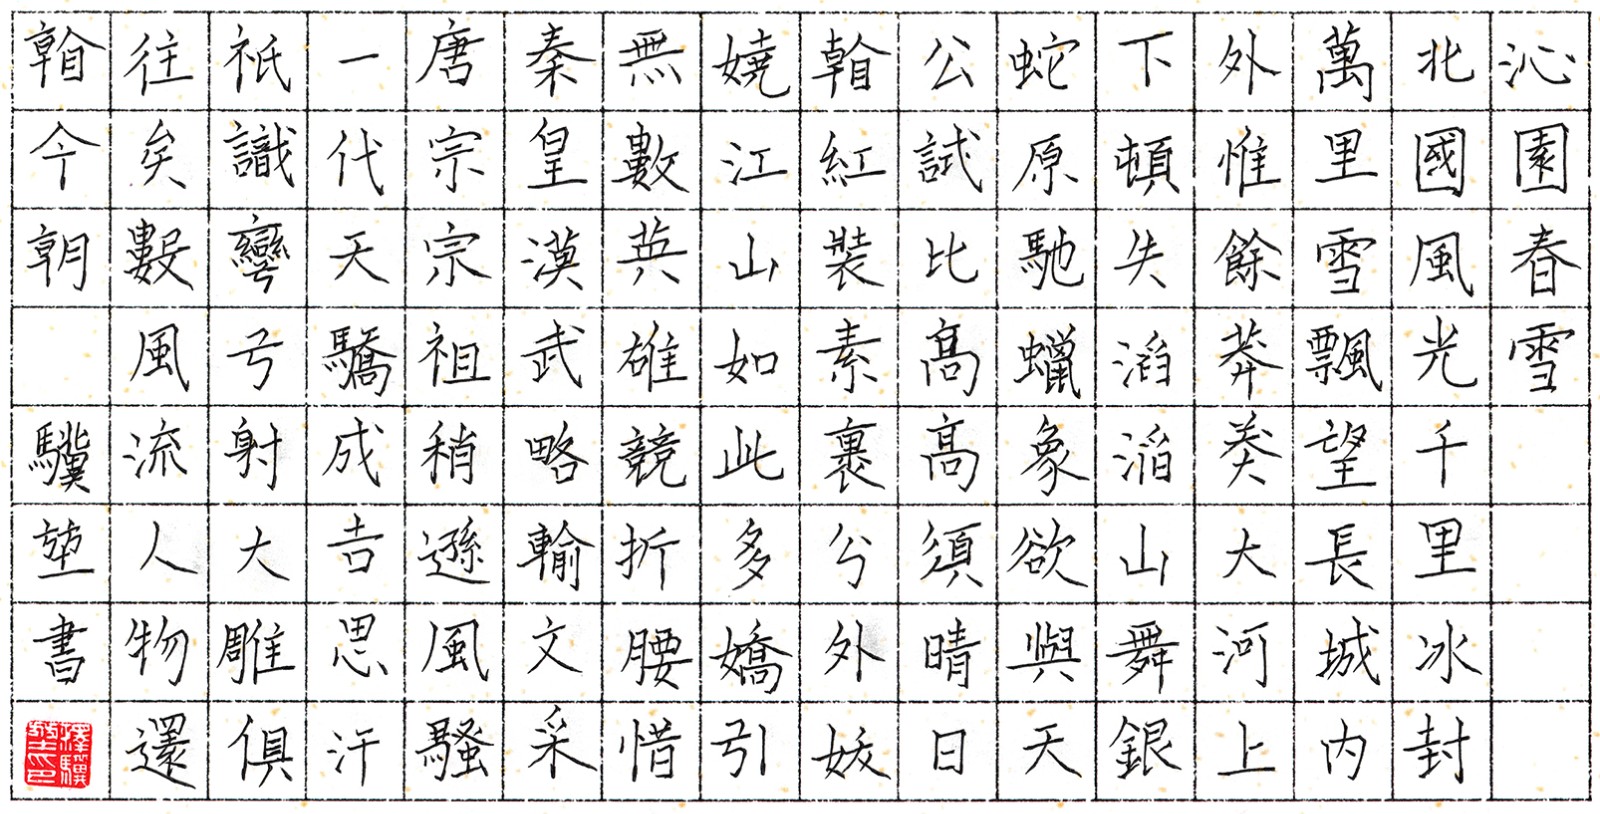 沁園春雪
北國風光千里冰封
萬里雪飄望長城内
外惟餘莽莽大河上
下頓失滔滔山舞銀
蛇原馳蠟象欲與天
公試比髙髙須晴日
看紅裝素裹分外妖
嬈江山如此多嬌引
無數英雄競折腰惜
秦皇漢武略輸文采
唐宗宗祖稍遜風騷
一代天驕成吉思汗
祇識彎弓射大雕俱
往矣數風流人物還
看今朝 驥堃書